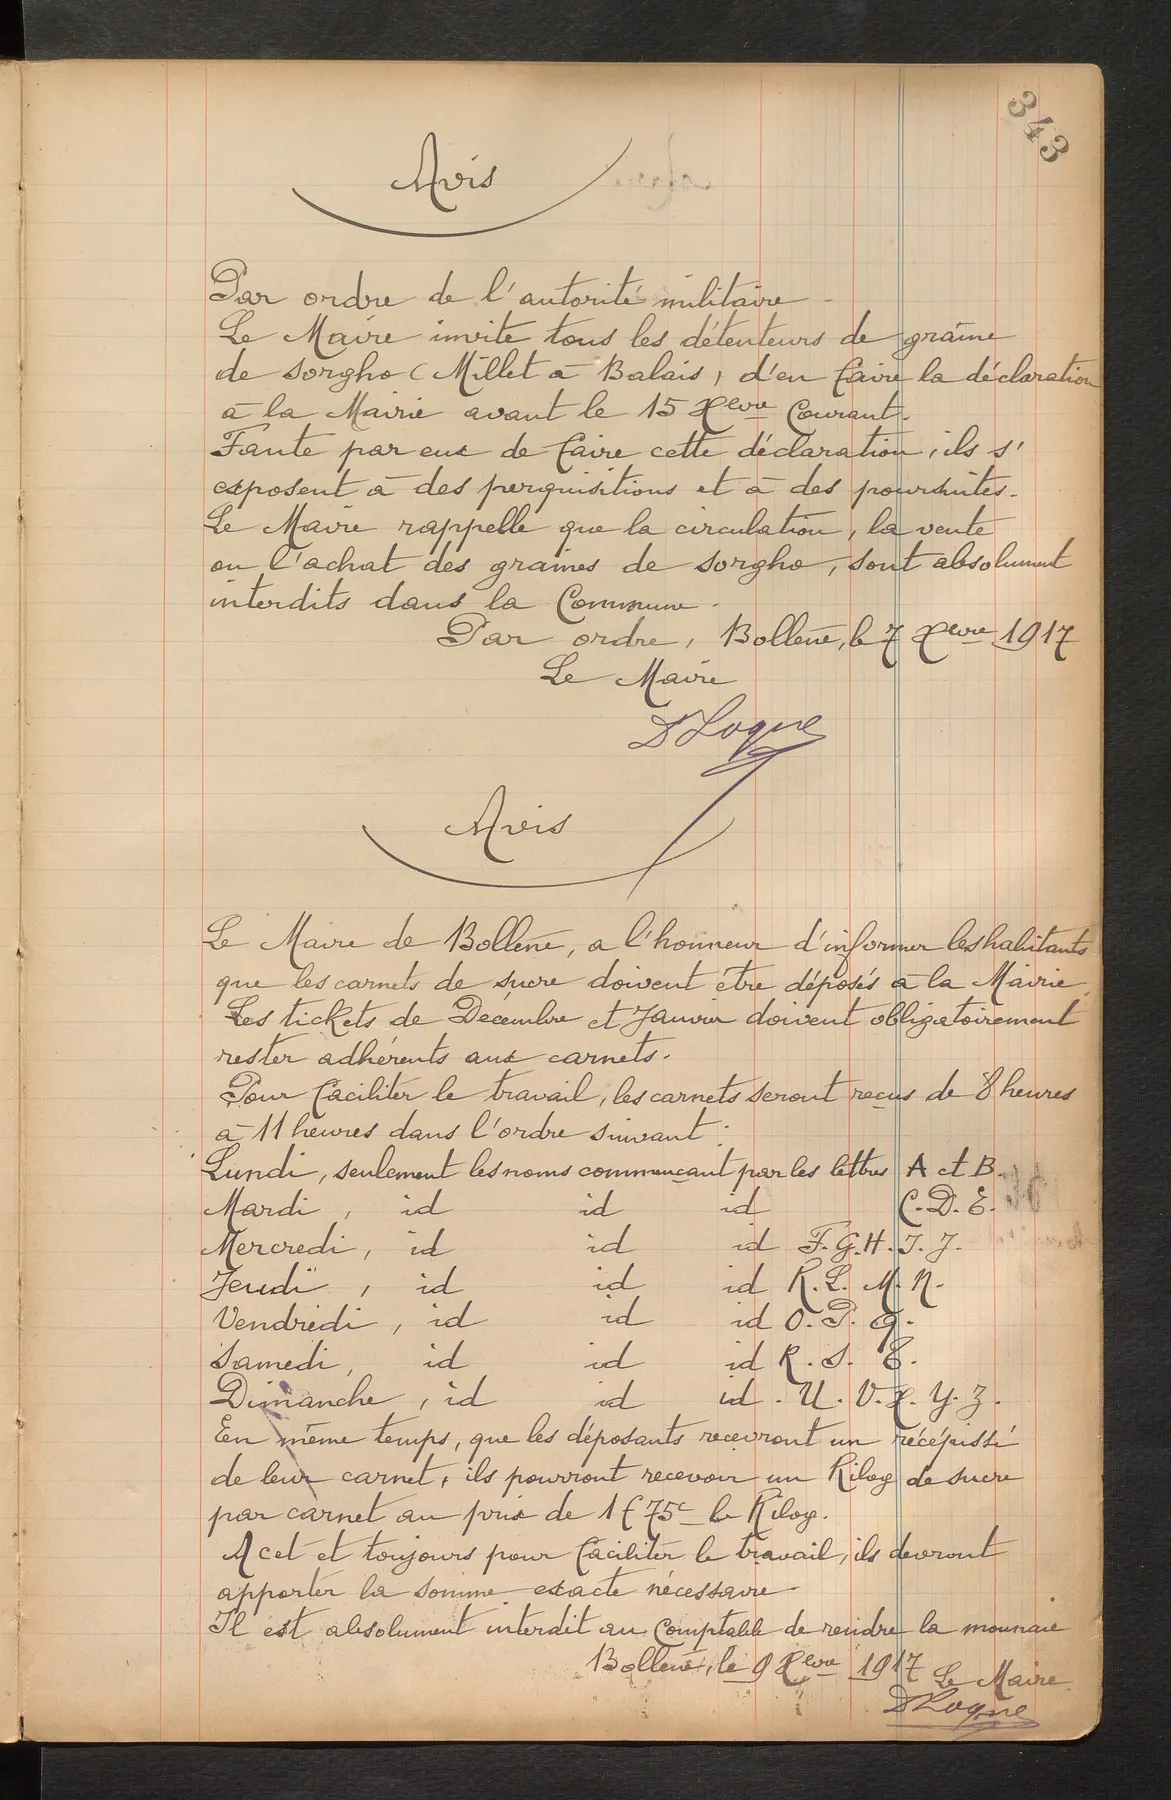 343
Avis
Par ordre de l'autorité militaire
Le Maire invite tous les détenteurs de graine
de sorgho (Millet à Balais), d'en faire la déclaration
à la Mairie avant le 15 Xbre Courant.
Faute par eux de faire cette déclaration, ils s'
exposent à des perquisitions et à des poursuites.
Le Maire rappelle que la circulation, la vente
ou l'achat des graines de sorgho, sont absolument
interdits dans la Commune.
Par ordre, Bollène, le 7 Xbre 1917
Le Maire
Dr Loque
Avis
Le Maire de Bollène, a l'honneur d'informer les habitants
que les carnets de sucre doivent être déposés à la Mairie.
Les tickets de Décembre et Janvier doivent obligatoirement
rester adhérents aux carnets.
Pour faciliter le travail, les carnets seront reçus de 8 heures
à 11 heures dans l'ordre suivant :
Lundi, seulement les noms commençant par les lettres A et B.
Mardi, id id id C. D. E.
Mercredi, id id id F. G. H. I. J.
Jeudi, id id id K. L. M. N.
Vendredi, id id id O. P. Q.
Samedi, id id id R. S. T.
Dimanche, id id id. U. V. X. Y. Z.
En même temps, que les déposants recevront un récépissé
de leur carnet, ils pourront recevoir un Kilog de sucre
par carnet au prix de 1f 75c le Kilog.
A cet et toujours pour faciliter le travail, ils devront
apporter la somme exacte nécessaire
Il est absolument interdit au Comptable de rendre la monnaie
Bollène, le 9 Xbre 1917 Le Maire
Dr Loque